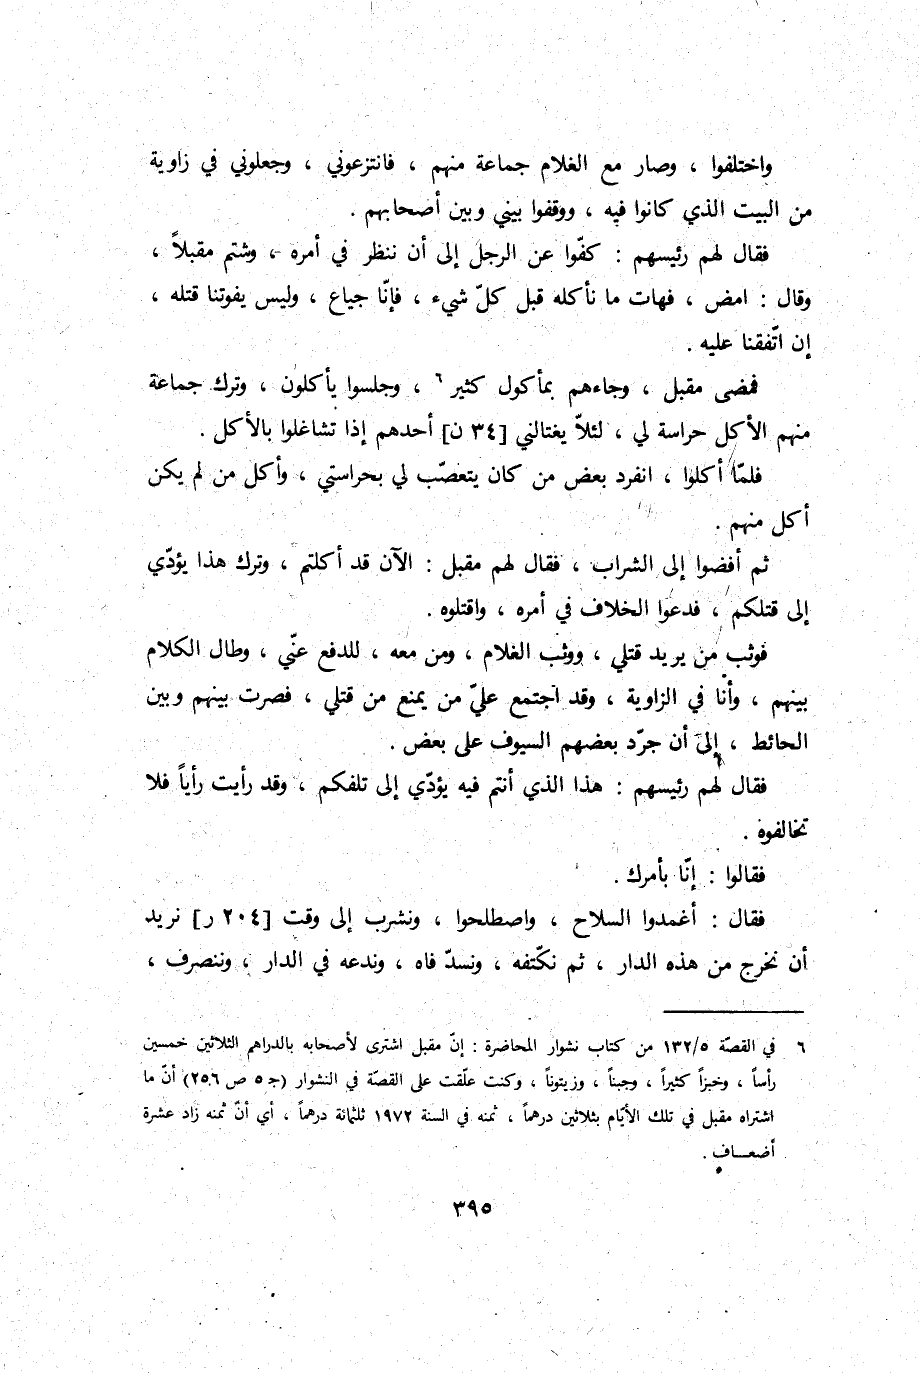 واختلفوا ، وصار مع الغلام جماعة منهم ، فانتزعوني ، وجعلوني في زاوية
من البيت الذي كانوا فيه ، ووقفوا بيني وبين أصحابهم .
فقال لهم رئيسهم : كفّوا عن الرجل إلى أن ننظر في أمره ، وشتم مقبلاً ،
وقال : امض ، فهات ما نأكله قبل كلّ شيء ، فإنّا جياع ، وليس يفوتنا قتله ،
إن اتّفقنا عليه .
فمضى مقبل ، وجاءهم بمأكول كثير ٦ ، وجلسوا يأكلون ، وترك جماعة
منهم الأكل حراسة لي ، لئلاّ يغتالني [٣٤ ن] أحدهم إذا تشاغلوا بالأكل .
فلمّا أكلوا ، انفرد بعض من كان يتعصّب لي بحراستي ، وأكل من لم يكن
أكل منهم .
ثم أفضوا إلى الشراب ، فقال لهم مقبل : الآن قد أكلتم ، وترك هذا يؤدّي
إلى قتلكم ، فدعوا الخلاف في أمره ، واقتلوه .
فوثب من يريد قتلي ، ووثب الغلام ، ومن معه ، للدفع عنّي ، وطال الكلام
بينهم ، وأنا في الزاوية ، وقد اجتمع عليّ من يمنع من قتلي ، فصرت بينهم وبين
الحائط ، إلى أن جرّد بعضهم السيوف على بعض .
فقال لهم رئيسهم : هذا الذي أنتم فيه يؤدّي إلى تلفكم ، وقد رأيت رأياً فلا
تخالفوه .
فقالوا : إنّا بأمرك .
فقال : أغمدوا السلاح ، واصطلحوا ، ونشرب إلى وقت [٢٠٤ ر] نريد
أن نخرج من هذه الدار ، ثم نكّتفه ، ونسدّ فاه ، وندعه في الدار ، وننصرف ،
٦ في القصّة ١٣٢/٥ من كتاب نشوار المحاضرة : إنّ مقبل اشترى لأصحابه بالدراهم الثلاثين خمسين
رأساً ، وخبزاً كثيراً ، وجبناً ، وزيتوناً ، وكنت علّقت على القصّة في النشوار (ج ٥ ص ٢٥٦) أنّ ما
اشتراه مقبل في تلك الأيّام بثلاثين درهماً ، ثمنه في السنة ١٩٧٢ ثلثمائة درهماً ، أي أنّ ثمنه زاد عشرة
أضعاف .
٣٩٥